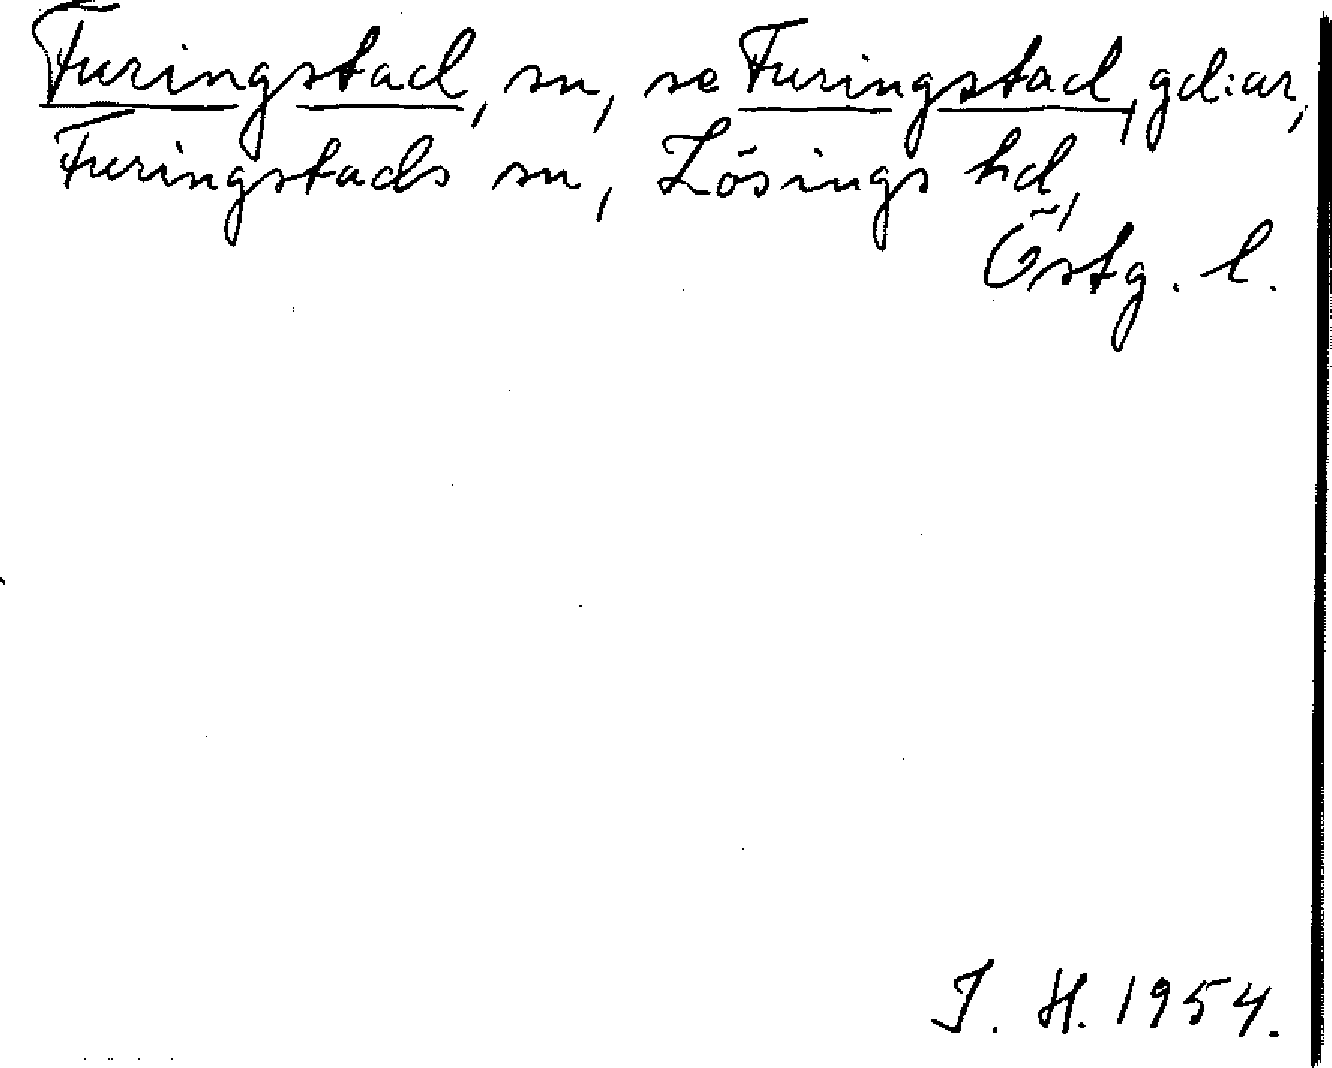 Furingstad, sn, se Furingstad, gd:ar,
Furingstads sn, Lösings hd,
Östg. l.
J. H. 1954.